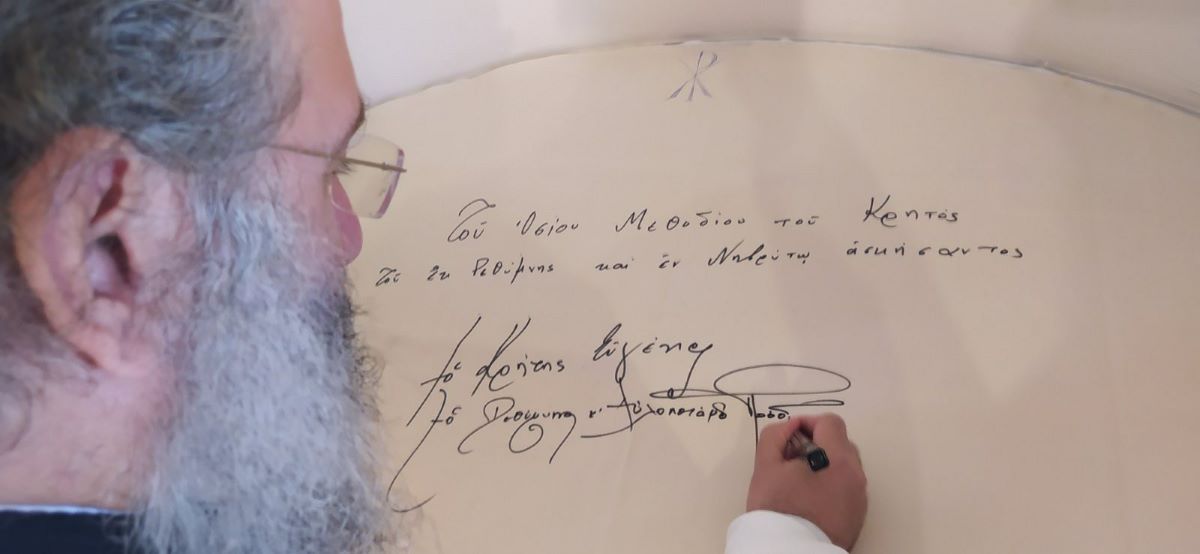 Τοῦ Ὁσίου Μεθοδίου τοῦ Κρητός
τοῦ ἐκ Ρεθύμνης καί ἐν Νηβρύτῳ ἀσκήσαντος
† ὁ Κρήτης Εὐγένιος
† ὁ Ρεθύμνης κ' Αὐλοποτάμου Προδ